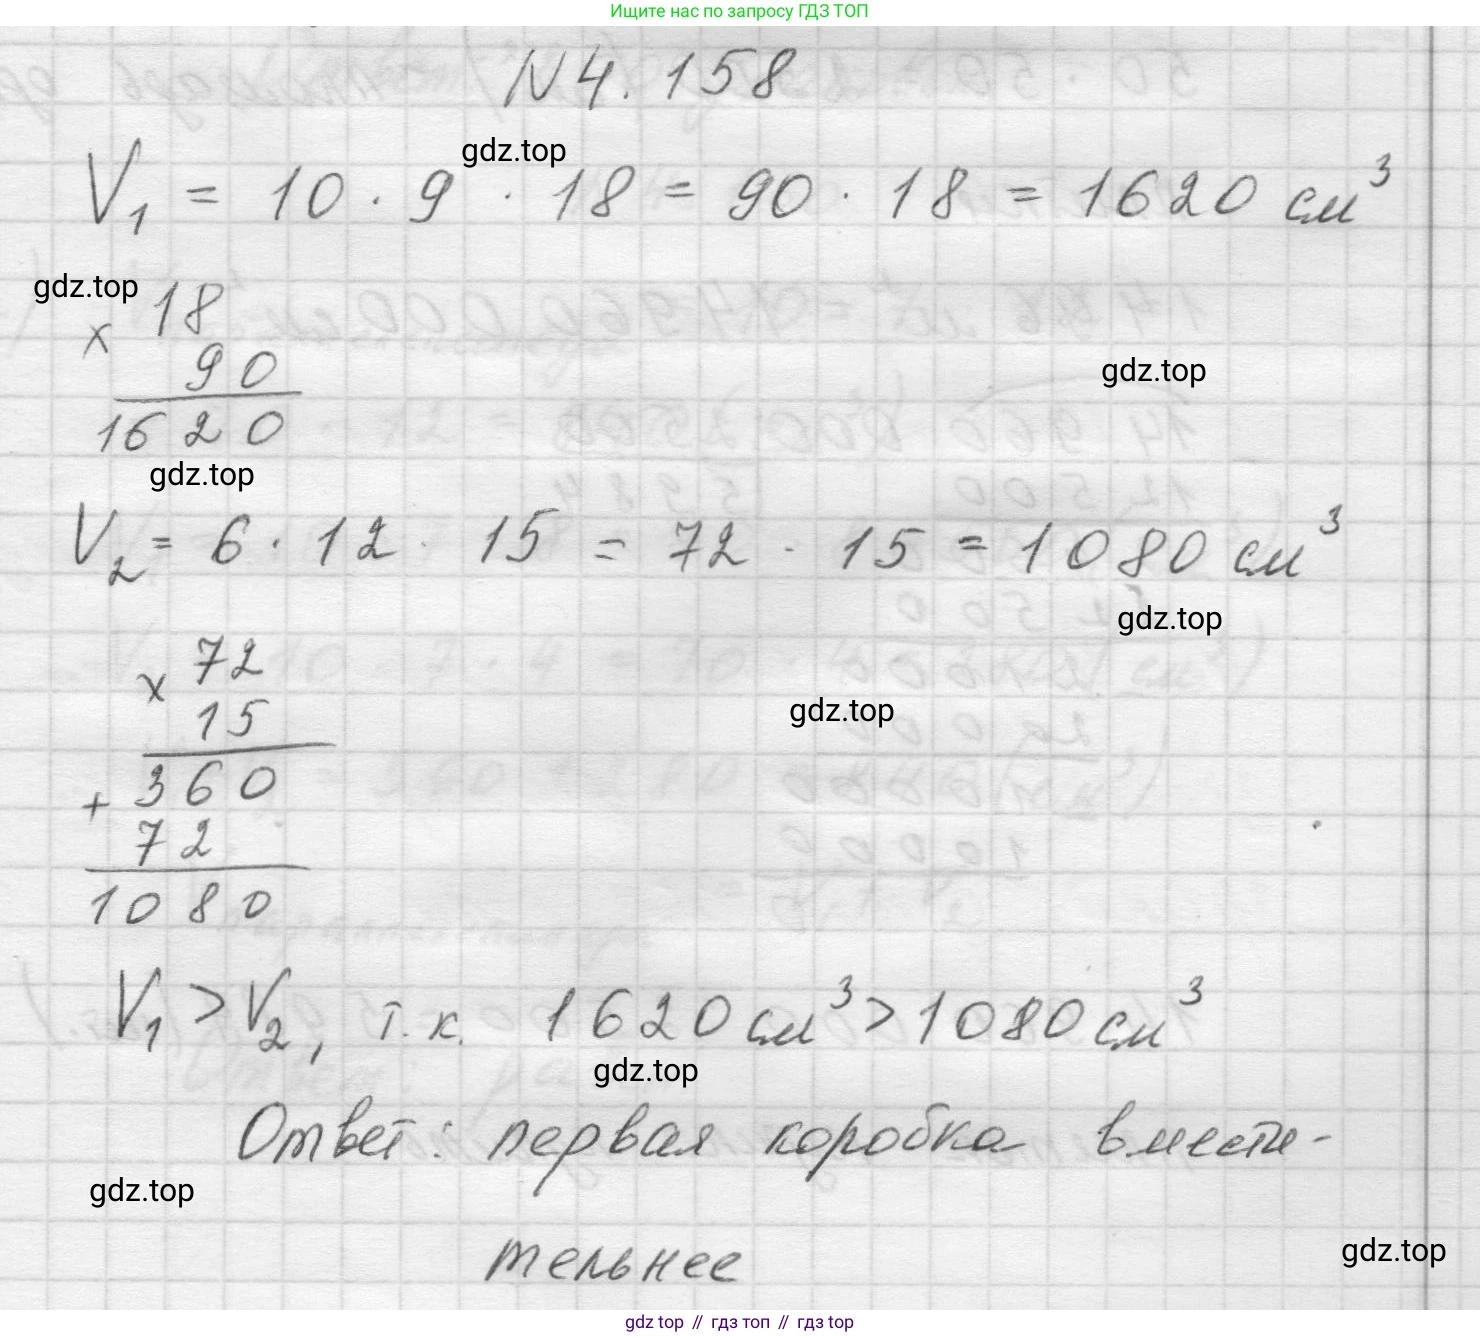 Ищите нас по запросу ГДЗ ТОП
N4.158
gdz.top
V₁ = 10 · 9 · 18 = 90 · 18 = 1620 см³
gdz.top
18
×
90
gdz.top
1620
gdz.top
V₂ = 6 · 12 · 15 = 72 · 15 = 1080 см³
gdz.top
72
×
15
gdz.top
360
+
72
1080
V₁ > V₂, т.к. 1620 см³ > 1080 см³
gdz.top
Ответ: первая коробка вмести-
gdz.top
тельнее
gdz.top
gdz top // гдз топ // гдз top